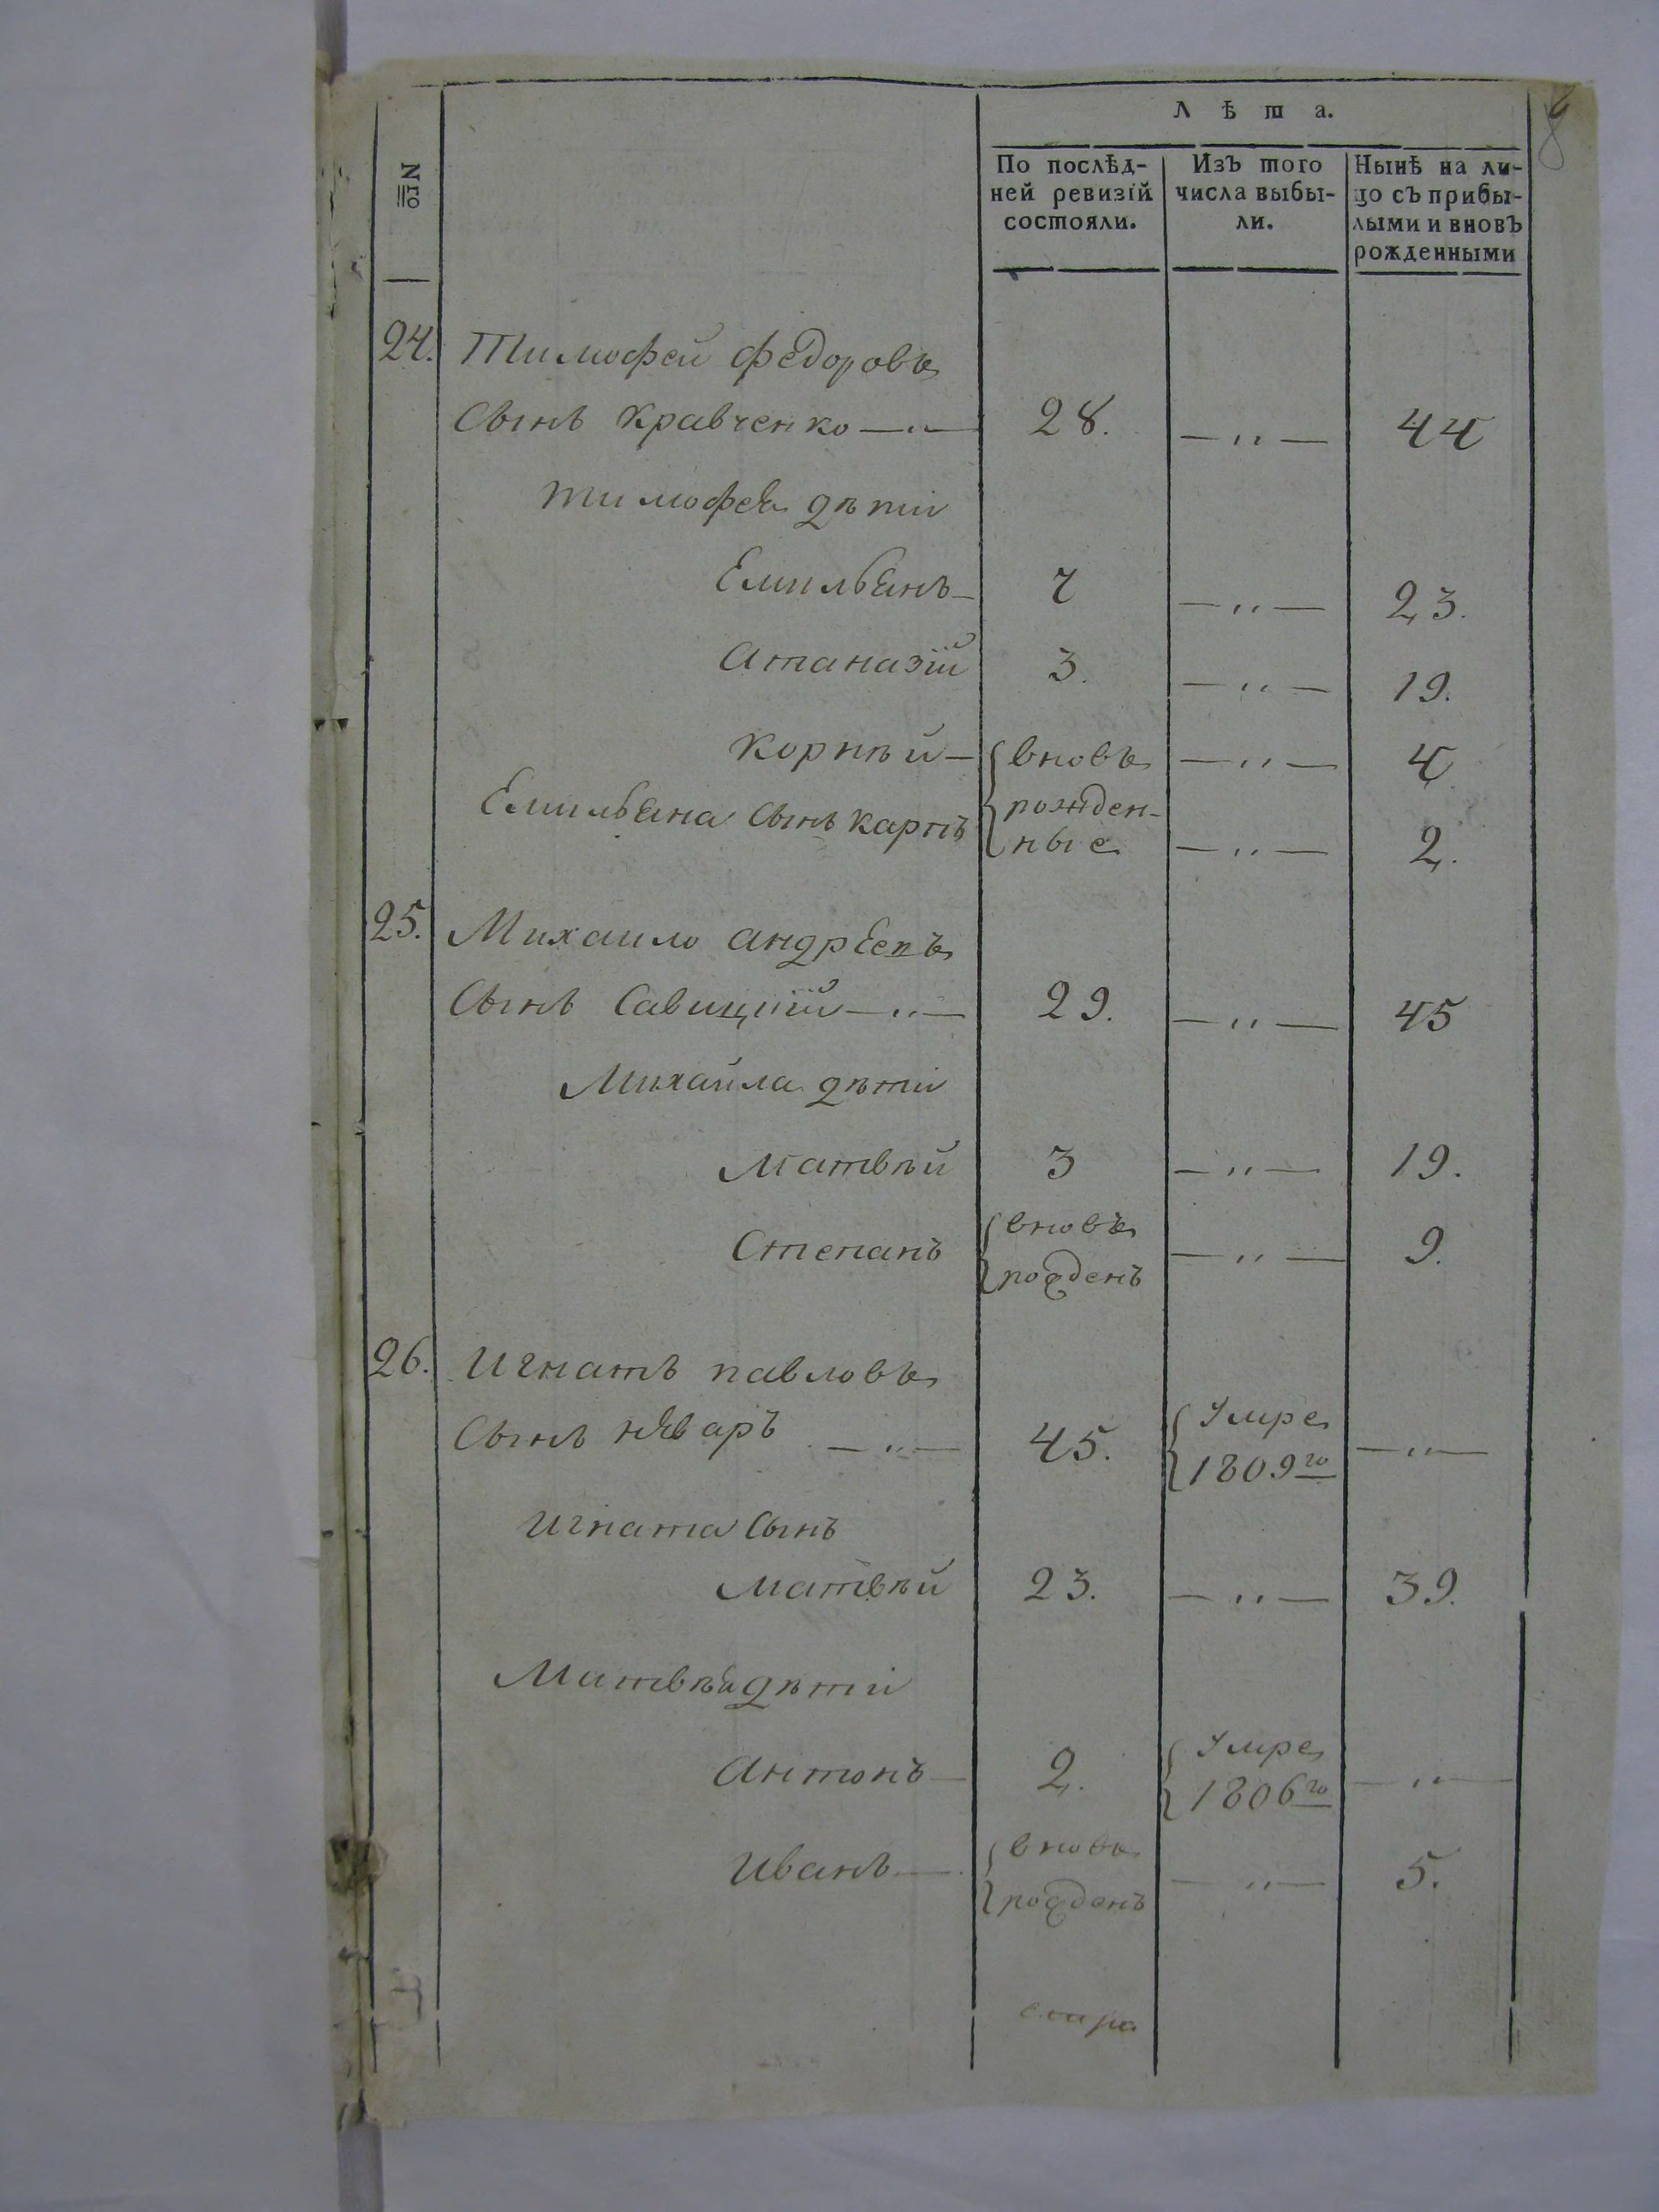 8
Nго
Лѣта.
По послѣд-
ней ревизїй
состояли.
Изъ того
числа выбы-
ли.
Нынѣ на ли-
цо съ прибы-
лыми и вновь
рожденными
24. Тимофей федоровъ
Сынъ Кравченко —„— 28. —„— 44
тимофея дѣти
Емильянъ — 7 —„— 23.
Атаназїй 3. —„— 19.
Корнѣй — вновь —„— 4
Емильяна Сынъ карпъ рожден-
ные —„— 2.
25. Михаило андреевъ
Сынъ Савицкїй —„— 29. —„— 45
Михайла дѣти
Матвѣй 3 —„— 19.
Степанъ вновь
рожденъ —„— 9.
26. Игнатъ павловъ
Сынъ —„— 45. Умре
1809го —„—
Игната Сынъ
Матвѣй 23. —„— 39.
Матвѣя дѣти
Антонъ — 2. Умре
1806го —„—
Иванъ — вновь
рожденъ —„— 5.